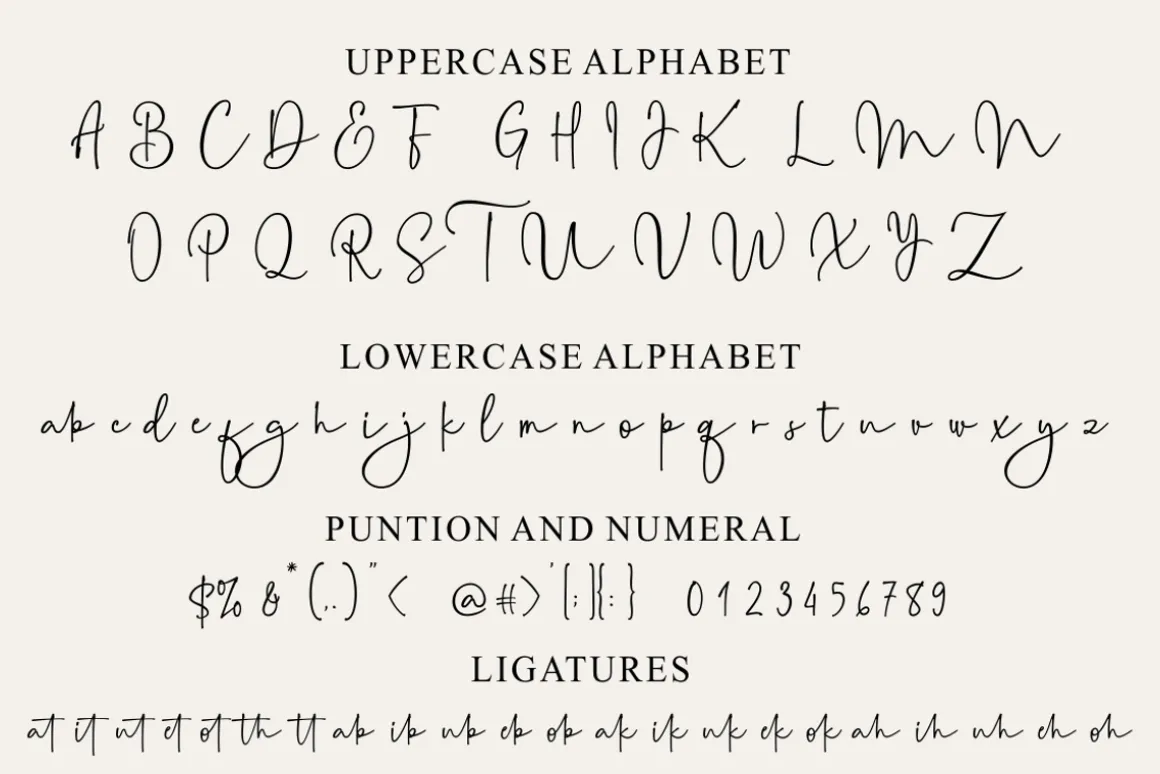 UPPERCASE ALPHABET
A B C D E F G H I J K L M N
O P Q R S T U V W X Y Z
LOWERCASE ALPHABET
a b c d e f g h i j k l m n o p q r s t u v w x y z
PUNTION AND NUMERAL
$ % & * ( , . ) " < @ # > ' [ ; ] { : } 0 1 2 3 4 5 6 7 8 9
LIGATURES
at it ut et ot th tt ab ib ub eb ob ak ik uk ek ok ah ih uh eh oh